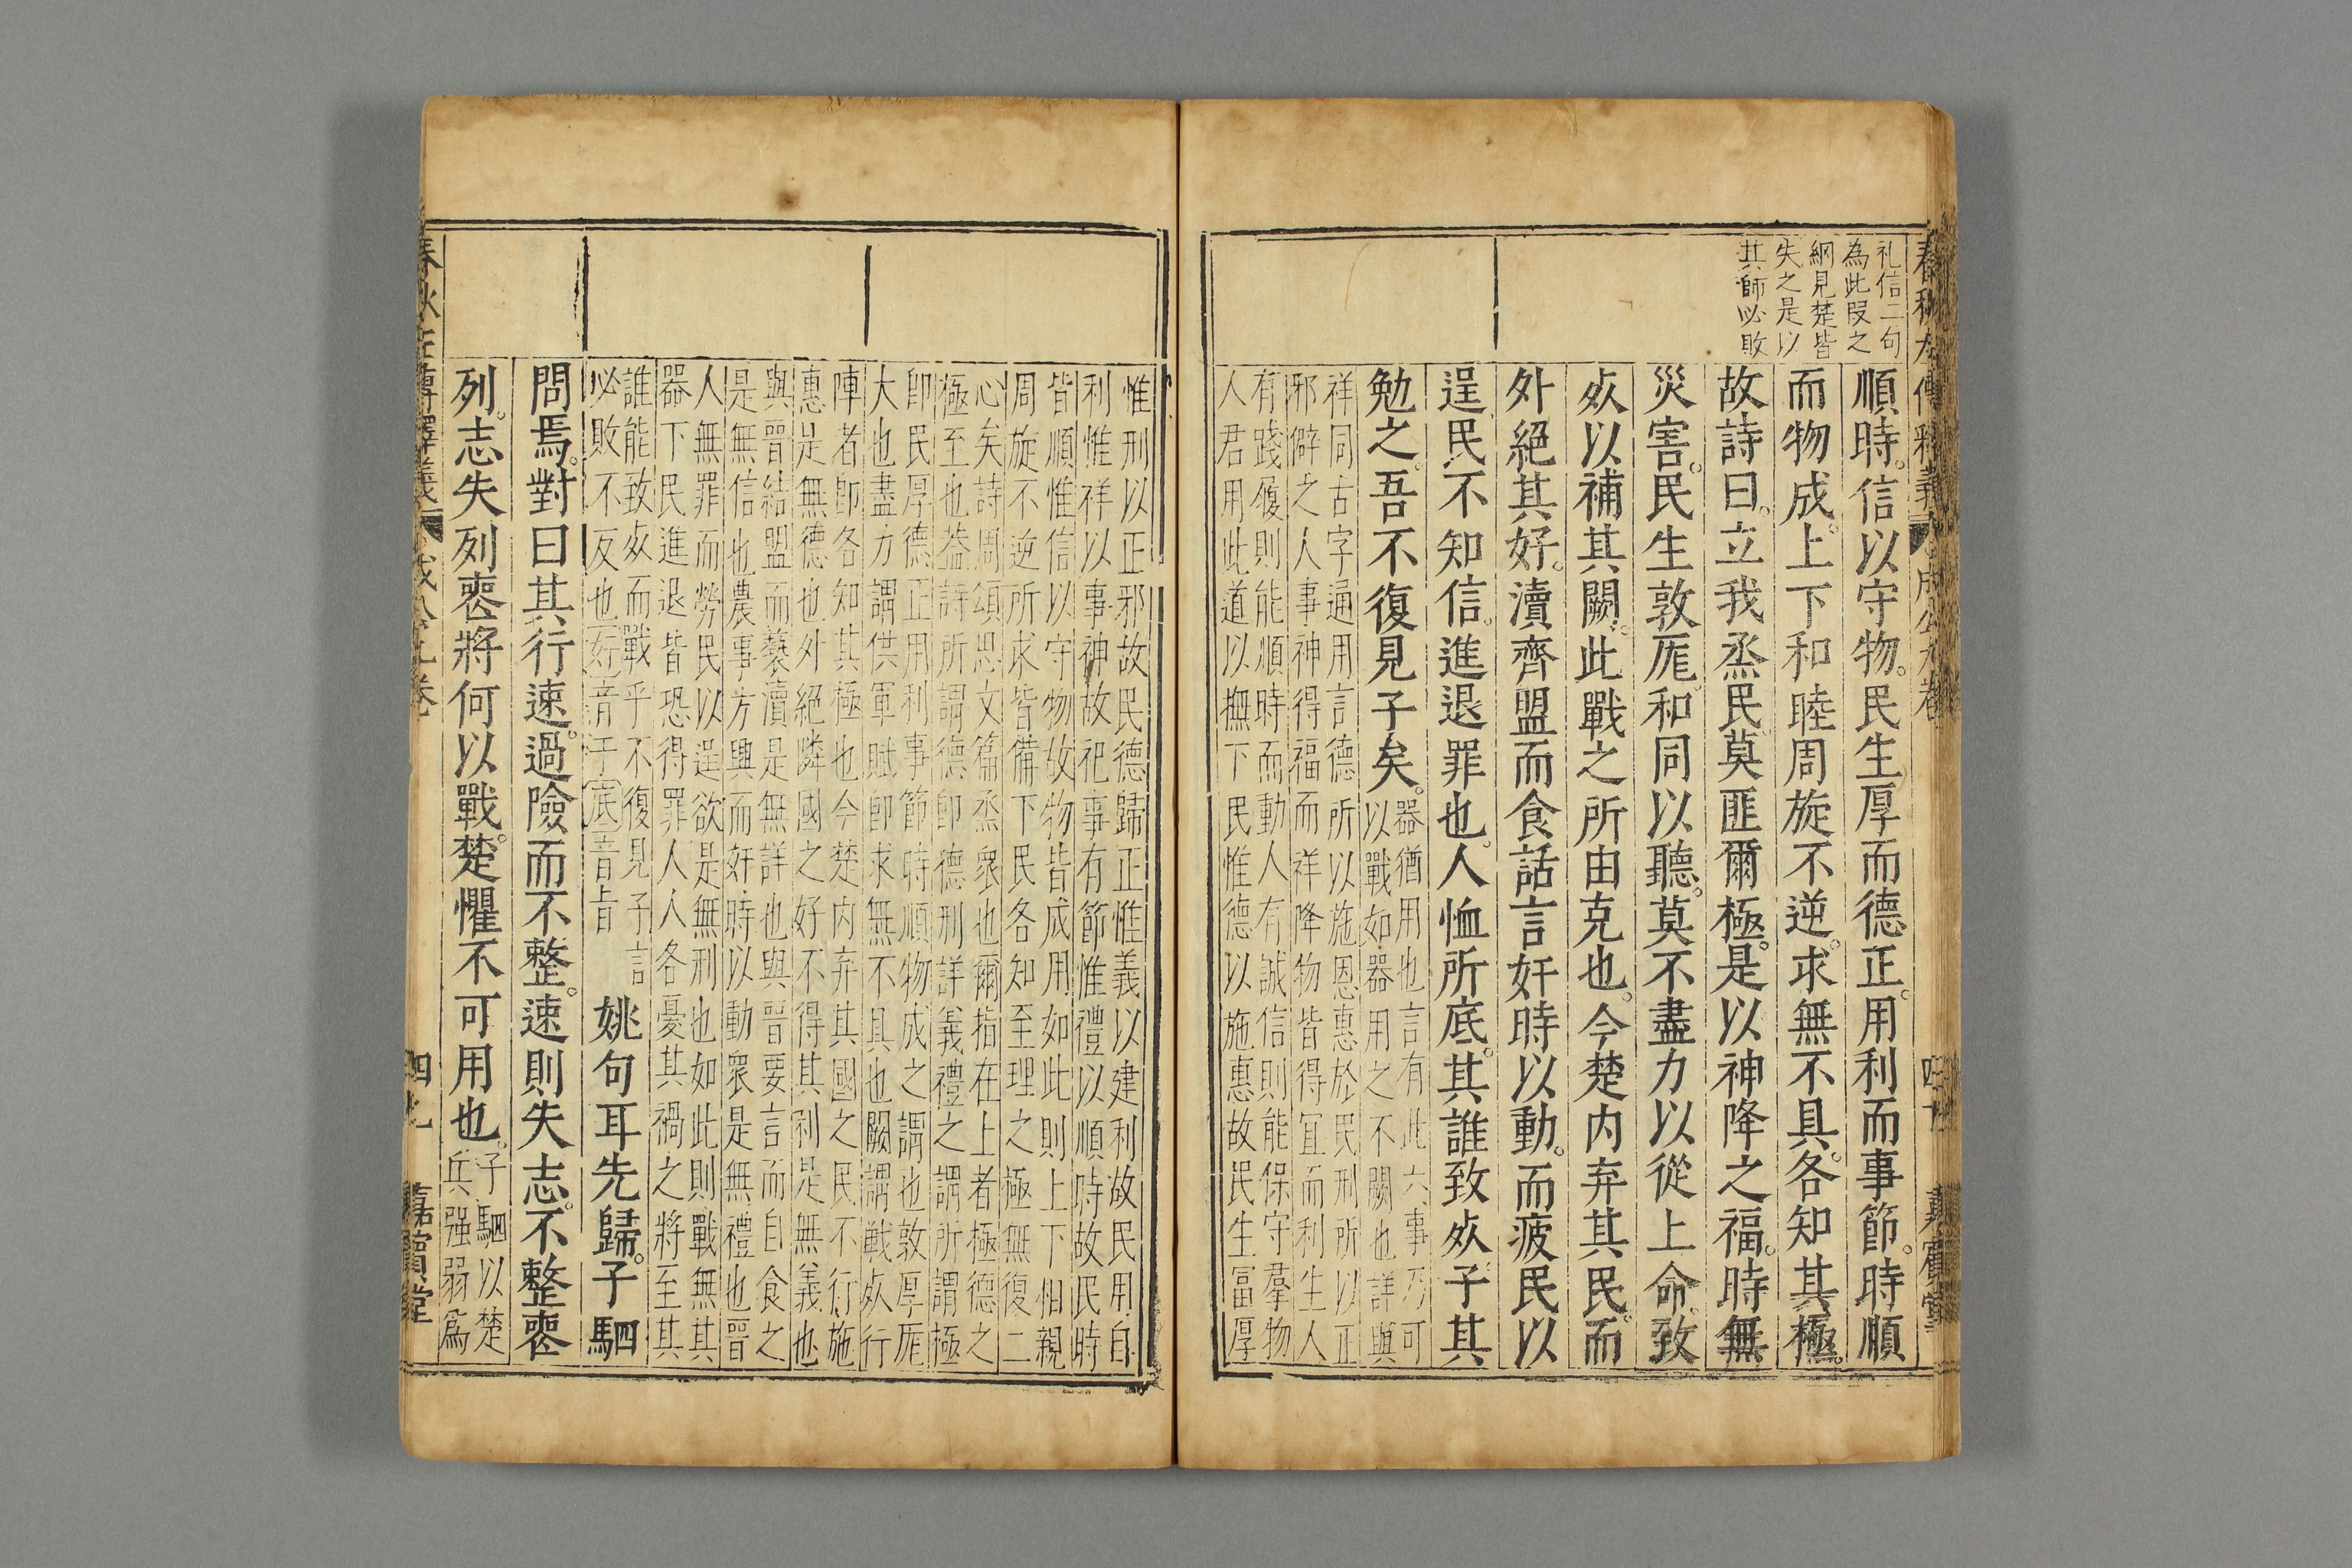 礼信二句
為此叚之
綱見楚皆
失之是以
其師必敗
順時信以守物民生厚而德正用利而事節時順
而物成上下和睦周旋不逆求無不具各知其極
故詩曰立我烝民莫匪爾極是以神降之福時無
災害民生敦厖和同以聽莫不盡力以從上命致
死以補其闕此戰之所由克也今楚内弃其民而
外絕其好瀆齊盟而食話言奸時以動而疲民以
逞民不知信進退罪也人恤所底其誰致死子其
勉之吾不復見子矣
器猶用也言有此六事乃可
以戰如器用之不闕也詳與
祥同古字通用言德所以施恩惠於民刑所以正
邪僻之人事神得福而祥降物皆得宜而利生人
有踐履則能順時而動人有誠信則能保守羣物
人君用此道以撫下民惟德以施惠故民生富厚
惟刑以正邪故民德歸正惟義以建利故民用自
利惟祥以事神故祀事有節惟禮以順時故民時
皆順惟信以守物故物皆成用如此則上下相親
周旋不逆所求皆備下民各知至理之極無復二
心矣詩周頌思文篇烝衆也爾指在上者極德之
極至也葢詩所謂德即德刑詳義禮之謂所謂極
即民厚德正用利事節時順物成之謂也敦厚厖
大也盡力謂供軍賦即求無不具也闕謂戰死行
陣者即各知其極也今楚内弃其國之民不行施
惠是無德也外絕隣國之好不得其利是無義也
與晉結盟而䙝瀆是無詳也與晉要言而自食之
是無信也農事方興而奸時以動衆是無禮也晉
人無罪而勞民以逞欲是無刑也如此則戰無其
器下民進退皆恐得罪人人各憂其禍之將至其
誰能致死而戰乎不復見子言
必敗不反也
姚句耳先歸子駟
問焉對曰其行速過險而不整速則失志不整喪
列志失列喪將何以戰楚懼不可用也
子駟以楚
兵强弱爲